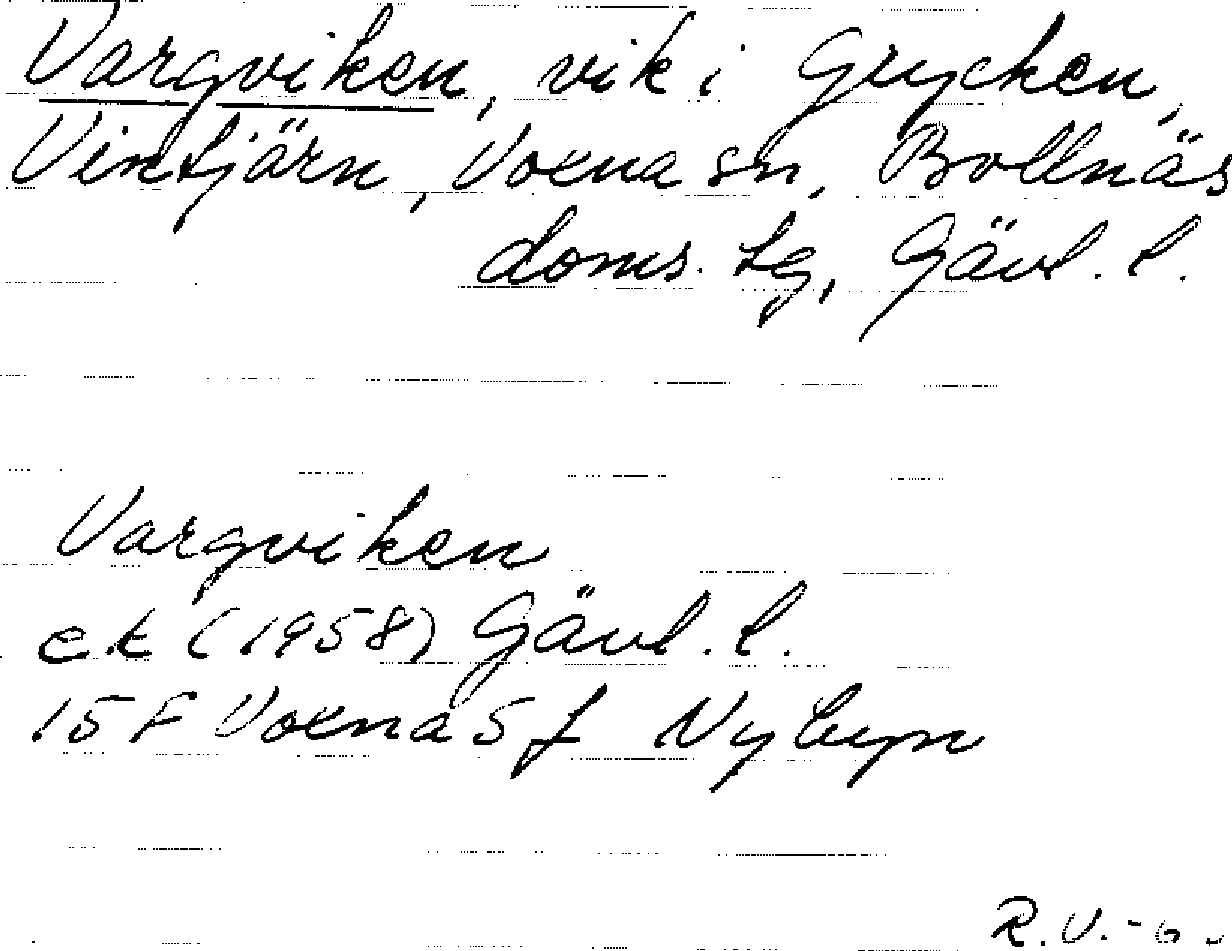 Vargviken, vik i Grycken,
Vintjärn, Voxna sn, Bollnäs
doms. tg, Gävl. l.
Vargviken
ek (1958) Gävl. l.
15 F Voxna 5 f Nybyn
R.V. -6